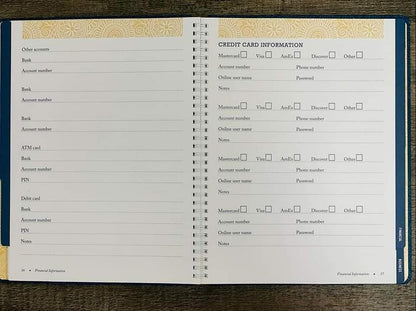 Other accounts
Bank
Account number
Bank
Account number
Bank
Account number
ATM card
Bank
Account number
PIN
Debit card
Bank
Account number
PIN
Notes
36 • Financial Information
CREDIT CARD INFORMATION
Mastercard Visa AmEx Discover Other
Account number Phone number
Online user name Password
Notes
Mastercard Visa AmEx Discover Other
Account number Phone number
Online user name Password
Notes
Mastercard Visa AmEx Discover Other
Account number Phone number
Online user name Password
Notes
Mastercard Visa AmEx Discover Other
Account number Phone number
Online user name Password
Notes
Financial Information • 37